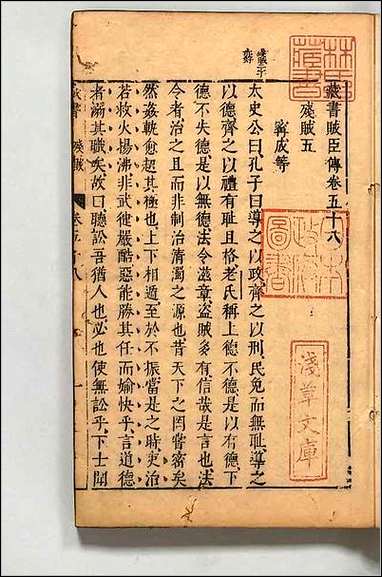 藏書賊臣傳卷五十八
殘賊五
甯成等
太史公曰孔子曰導之以政齊之以刑民免而無恥導之
以德齊之以禮有恥且格老氏稱上德不德是以有德下
德不失德是以無德法令滋章盜賊多有信哉是言也法
令者治之具而非制治清濁之源也昔天下之罔嘗密矣
然姦軌愈起其極也上下相遁至於不振當是之時吏治
若救火揚沸非武健嚴酷惡能勝其任而愉快乎言道德
者溺其職矣故曰聽訟吾猶人也必也使無訟乎下士聞
藏書
殘賊
卷五十八
一
淺草文庫
日本政府圖書